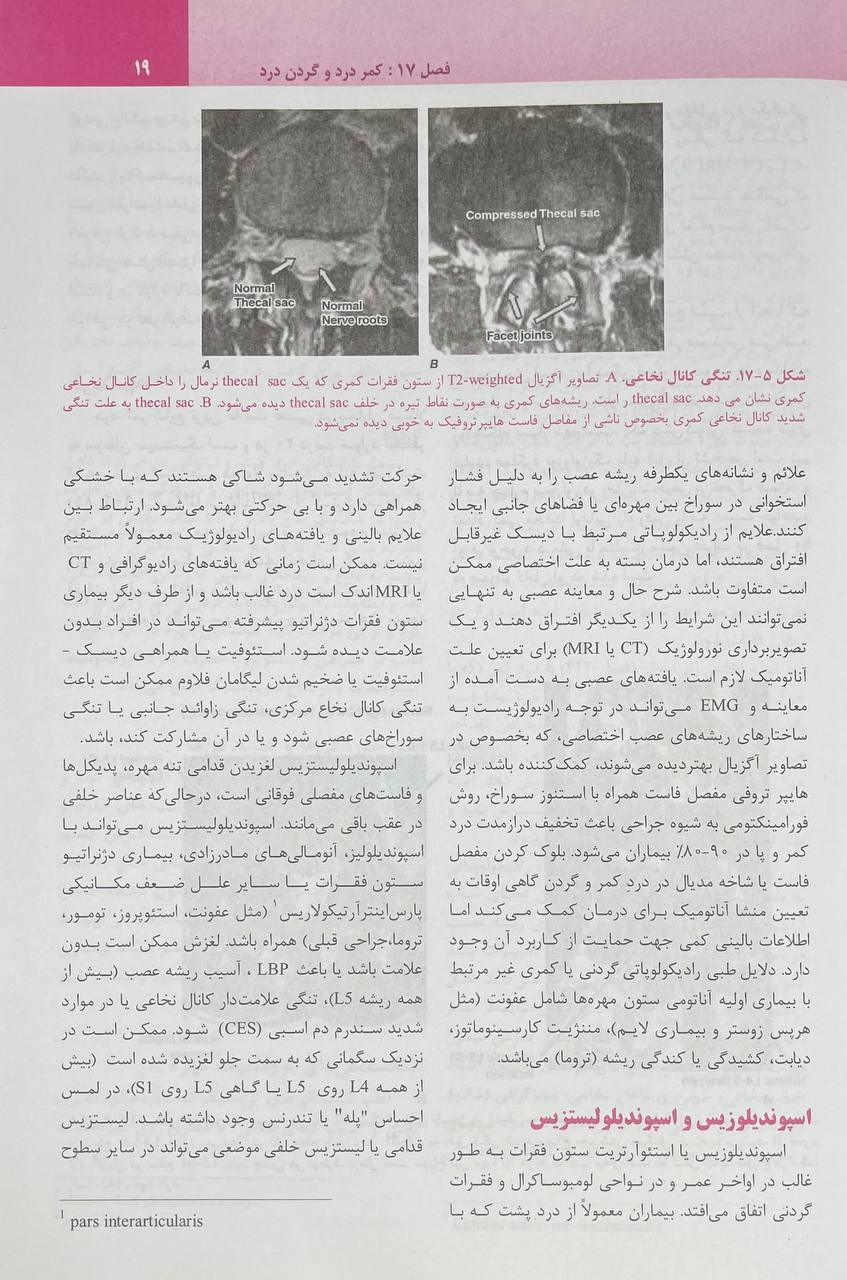 فصل ۱۷ : کمر درد و گردن درد
۱۹
Compressed Thecal sac
Normal
Thecal sac
Normal
Nerve roots
Facet joints
A
B
شکل ۵-۱۷. تنگی کانال نخاعی. A. تصاویر آگزیال T2-weighted از ستون فقرات کمری که یک thecal sac نرمال را داخل کانال نخاعی
کمری نشان می دهد. thecal sac ر است. ریشه‌های کمری به صورت نقاط تیره در خلف thecal sac دیده می‌شود. B. thecal sac به علت تنگی
شدید کانال نخاعی کمری بخصوص ناشی از مفاصل فاست هایپرتروفیک به خوبی دیده نمی‌شود.
علائم و نشانه‌های یکطرفه ریشه عصب را به دلیل فشار
استخوانی در سوراخ بین مهره‌ای یا فضاهای جانبی ایجاد
کنند.علایم از رادیکولوپاتی مرتبط با دیسک غیرقابل
افتراق هستند، اما درمان بسته به علت اختصاصی ممکن
است متفاوت باشد. شرح حال و معاینه عصبی به تنهایی
نمی‌توانند این شرایط را از یکدیگر افتراق دهند و یک
تصویربرداری نورولوژیک (CT یا MRI) برای تعیین علت
آناتومیک لازم است. یافته‌های عصبی به دست آمده از
معاینه و EMG می‌تواند در توجه رادیولوژیست به
ساختارهای ریشه‌های عصب اختصاصی، که بخصوص در
تصاویر آگزیال بهتردیده می‌شوند، کمک‌کننده باشد. برای
هایپر تروفی مفصل فاست همراه با استنوز سوراخ، روش
فورامینکتومی به شیوه جراحی باعث تخفیف درازمدت درد
کمر و پا در ۹۰-۸۰٪ بیماران می‌شود. بلوک کردن مفصل
فاست یا شاخه مدیال در دردِ کمر و گردن گاهی اوقات به
تعیین منشا آناتومیک برای درمان کمک می‌کند اما
اطلاعات بالینی کمی جهت حمایت از کاربرد آن وجود
دارد. دلایل طبی رادیکولوپاتی گردنی یا کمری غیر مرتبط
با بیماری اولیه آناتومی ستون مهره‌ها شامل عفونت (مثل
هرپس زوستر و بیماری لایم)، مننژیت کارسینوماتوز،
دیابت، کشیدگی یا کندگی ریشه (تروما) می‌باشد.
اسپوندیلوزیس و اسپوندیلولیستزیس
اسپوندیلوزیس یا استئوآرتریت ستون فقرات به طور
غالب در اواخر عمر و در نواحی لومبوساکرال و فقرات
گردنی اتفاق می‌افتد. بیماران معمولاً از درد پشت که با
حرکت تشدید می‌شود شاکی هستند که با خشکی
همراهی دارد و با بی حرکتی بهتر می‌شود. ارتباط بین
علایم بالینی و یافته‌های رادیولوژیک معمولاً مستقیم
نیست. ممکن است زمانی که یافته‌های رادیوگرافی و CT
یا MRI اندک است درد غالب باشد و از طرف دیگر بیماری
ستون فقرات دژنراتیو پیشرفته می‌تواند در افراد بدون
علامت دیده شود. استئوفیت یا همراهی دیسک -
استئوفیت یا ضخیم شدن لیگامان فلاوم ممکن است باعث
تنگی کانال نخاع مرکزی، تنگی زاوائد جانبی یا تنگی
سوراخ‌های عصبی شود و یا در آن مشارکت کند، باشد.
اسپوندیلولیستزیس لغزیدن قدامی تنه مهره، پدیکل‌ها
و فاست‌های مفصلی فوقانی است، درحالی‌که عناصر خلفی
در عقب باقی می‌مانند. اسپوندیلولیستزیس می‌تواند با
اسپوندیلولیز، آنومالی‌های مادرزادی، بیماری دژنراتیو
ستون فقرات یا سایر علل ضعف مکانیکی
پارس‌اینترآرتیکولاریس۱ (مثل عفونت، استئوپروز، تومور،
تروما،جراحی قبلی) همراه باشد. لغزش ممکن است بدون
علامت باشد یا باعث LBP ، آسیب ریشه عصب (بیش از
همه ریشه L5)، تنگی علامت‌دار کانال نخاعی یا در موارد
شدید سندرم دم اسبی (CES) شود. ممکن است در
نزدیک سگمانی که به سمت جلو لغزیده شده است (بیش
از همه L4 روی L5 یا گاهی L5 روی S1)، در لمس
احساس "پله" یا تندرنس وجود داشته باشد. لیستزیس
قدامی یا لیستزیس خلفی موضعی می‌تواند در سایر سطوح
1 pars interarticularis